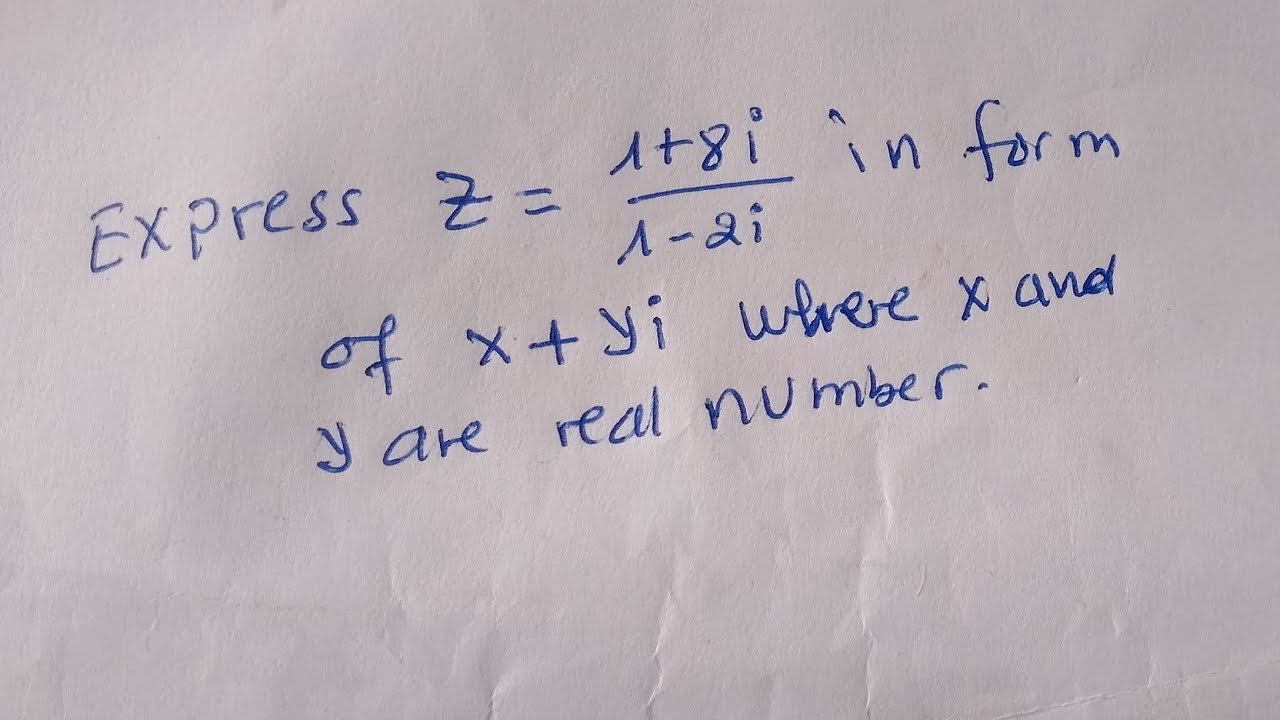 Express z = \frac{1+8i}{1-2i} in form
of x + yi where x and
y are real number.